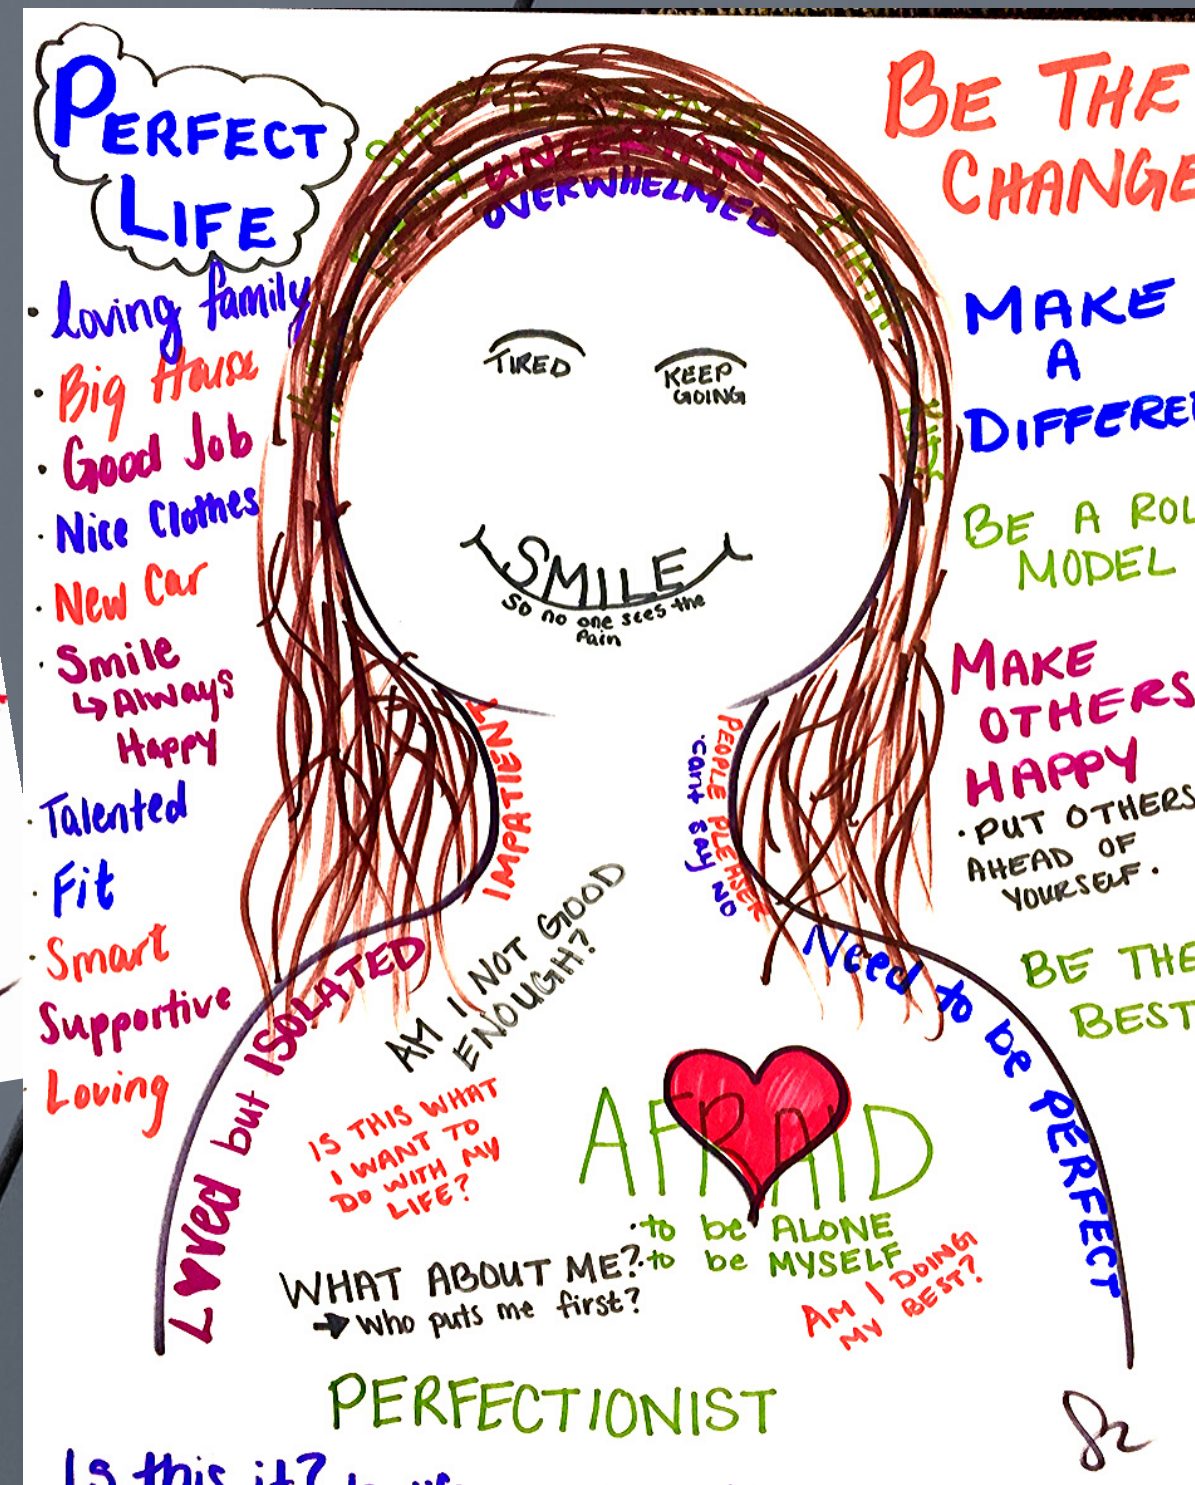 PERFECT
LIFE
· loving family
· Big House
· Good Job
· Nice Clothes
· New Car
· Smile
↳ Always
Happy
· Talented
· Fit
· Smart
Supportive
Loving
UNCERTAIN
OVERWHELMED
TIRED
KEEP
GOING
SMILE
So no one sees the
Pain
IMPATIENT
PEOPLE PLEASER
'cant say NO
Loved but ISOLATED
Need to be PERFECT
AM I NOT GOOD
ENOUGH?
IS THIS WHAT
I WANT TO
DO WITH MY
LIFE?
AFRAID
· to be ALONE
· to be MYSELF
WHAT ABOUT ME?
→ Who puts me first?
AM I DOING
MY BEST?
PERFECTIONIST
Is this it?
BE THE
CHANGE
MAKE
A
DIFFERE
BE A ROL
MODEL
MAKE
OTHERS
HAPPY
· PUT OTHERS
AHEAD OF
YOURSELF.
BE THE
BEST